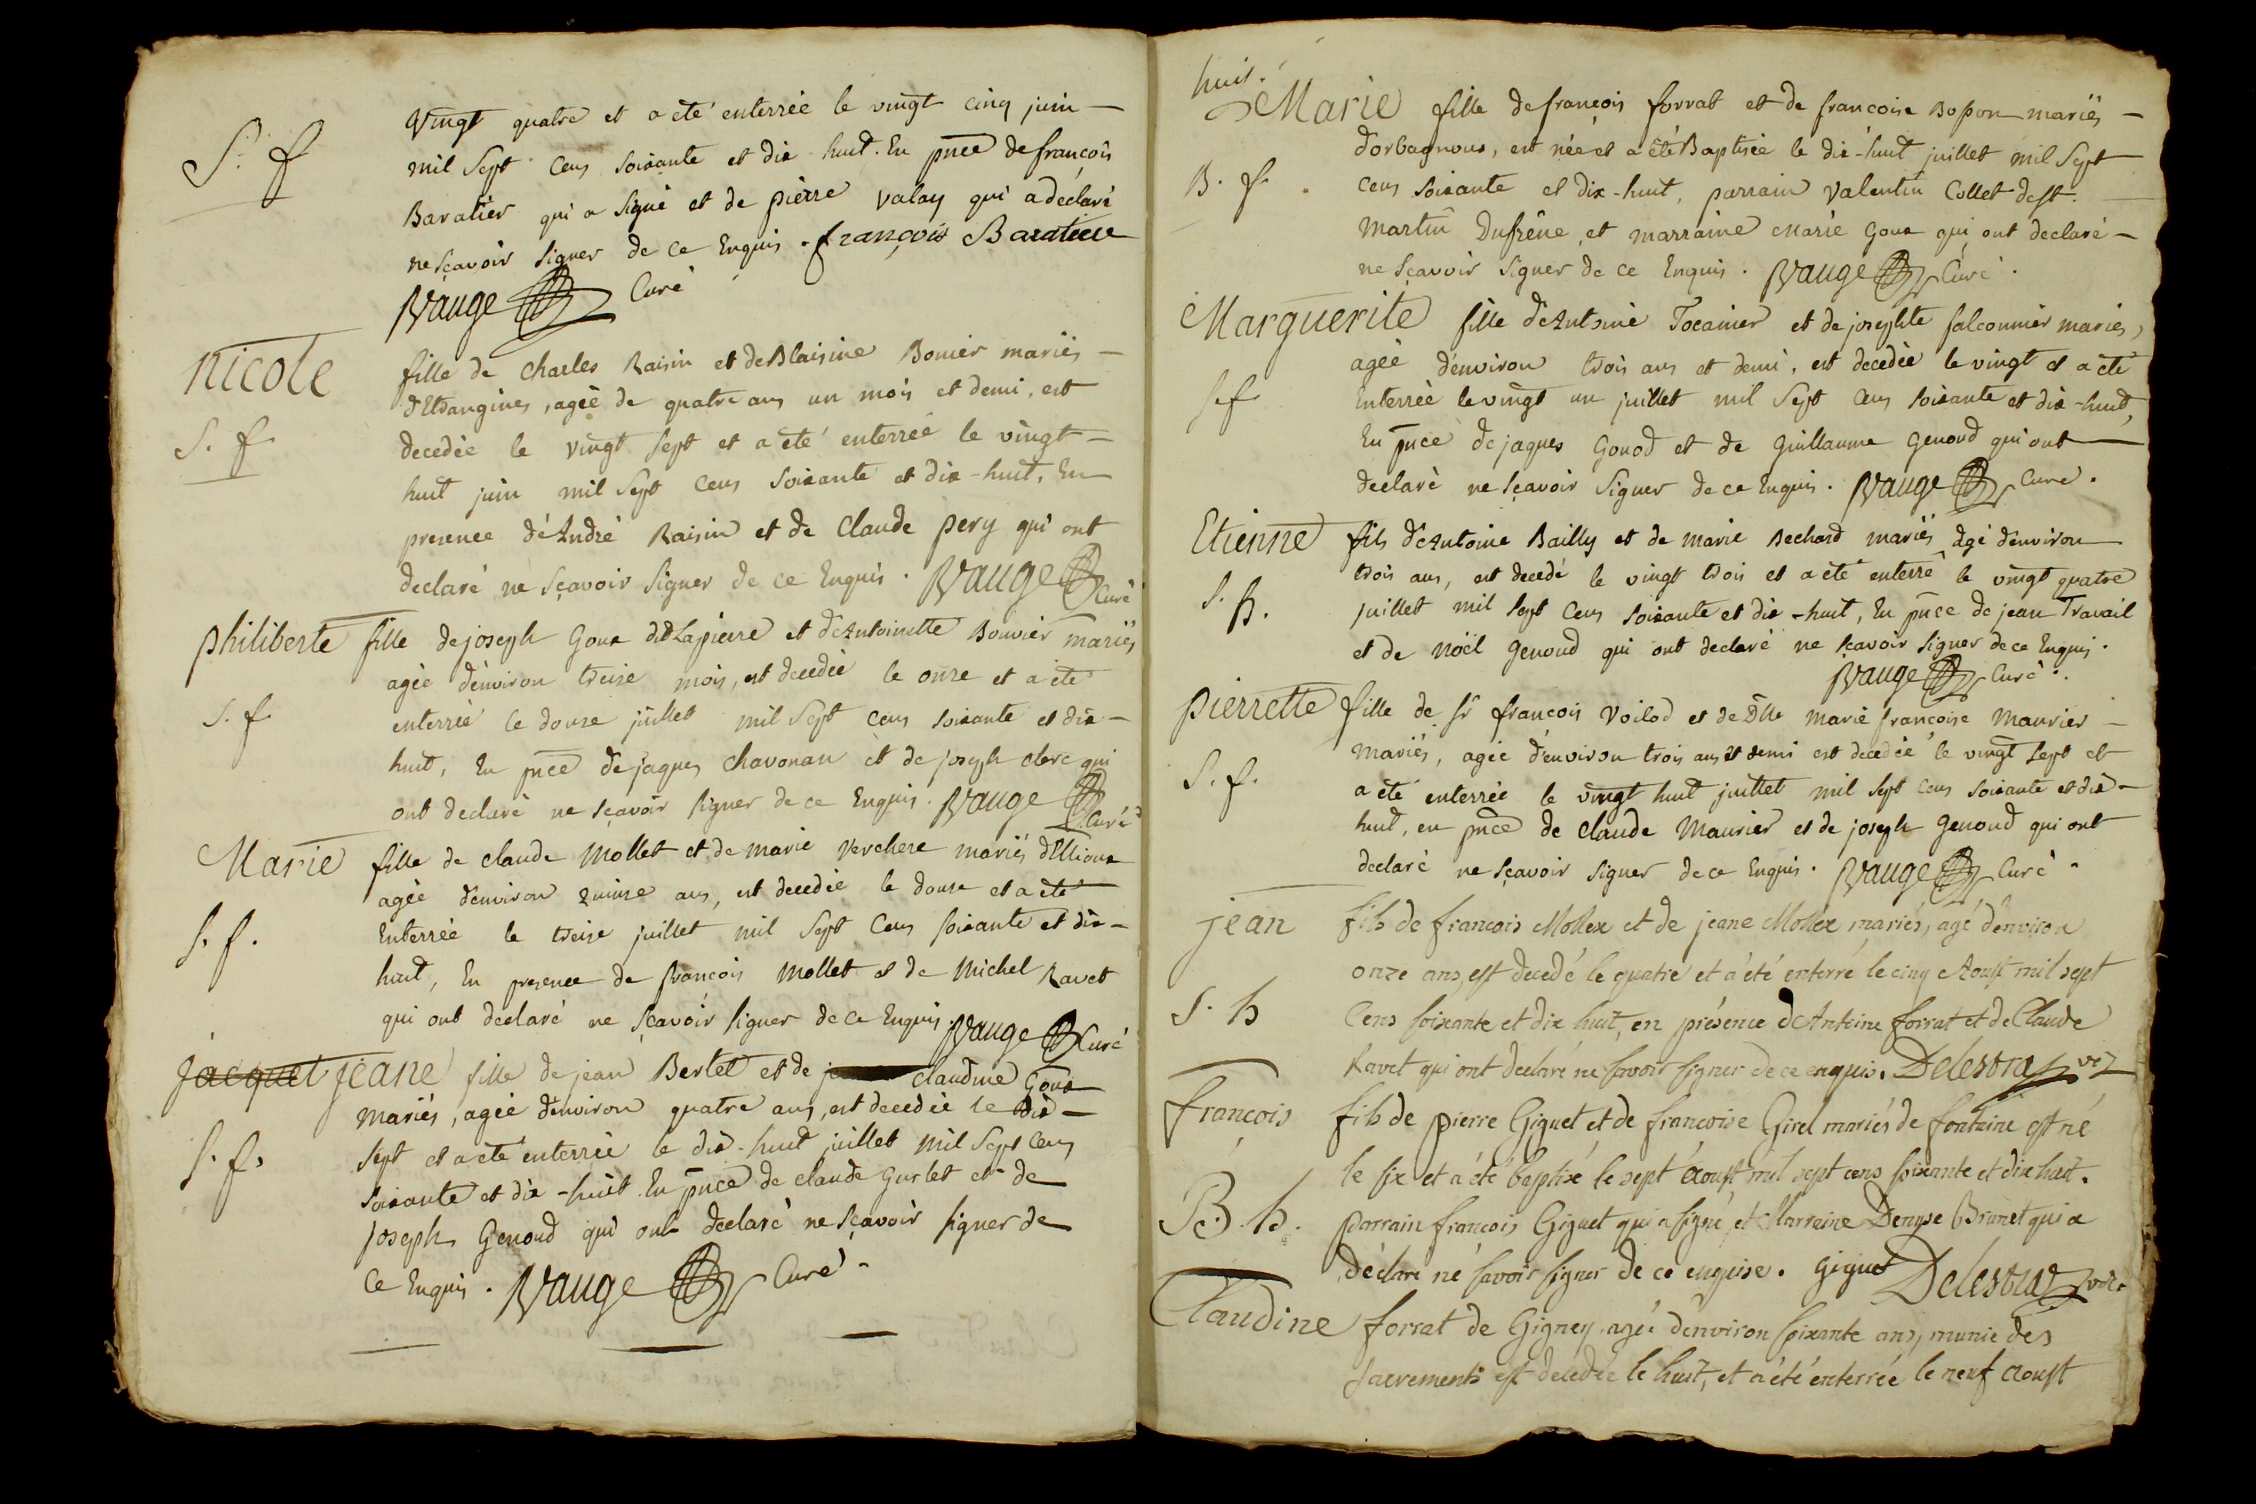 S. f
Vingt quatre et a eté enterrée le vingt cinq juin
mil Sept Cens Soixante et dix huit. En pnce de francois
Baratier qui a Signé et de pierre valay qui a déclaré
ne sçavoir signer de ce Enquis. françois Baratier
Vauge Curé
Nicole
fille de Charles Raisin et de Blaisine Bonier mariés
d'Etrangines, agée de quatre ans un mois et demi, est
S. f.
decedée le vingt sept et a eté enterreé le vingt
huit juin mil Sept Cens Soixante et dix-huit. En
presence d'André Raisin et de Claude pery qui ont
declaré ne sçavoir Signer de ce Enquis. Vauge Curé
Philiberte fille de joseph Goux dit Lapierre et d'Antoinette Bouvier mariés
agée d'environ treize mois, est decedée le onze et a été
S. f.
enterrée le douze juillet mil Sept Cens Soixante et dix-
huit, En pnce de jaques Chavanan et de joseph clerc qui
ont declaré ne sçavoir signer de ce Enquis. Vauge Curé
Marie fille de claude Mollet et de marie verchere mariés d'Illioux
agée d'environ quinze ans, est decedée le douze et a été
S. f.
Enterrée le treize juillet mil Sept Cens Soixante et dix-
huit, En presence de francois Mollet et de Michel Ravet
qui ont declaré ne sçavoir signer de ce Enquis. Vauge Curé
Jacquet jeane fille de jean Bertet et de claudine Goux
Mariés, agée d'environ quatre ans, est decedée le Dix-
S. f.
Sept et a été enterrée le dix-huit juillet mil Sept Cens
Soixante et dix-huit. En pnce de claude Gurlet et de
joseph Genoud qui ont declaré ne sçavoir signer de
Ce Enquis. Vauge Curé.
huit.
Marie fille de françois forrat et de francoise Bosson mariés
d'orbagnoux, est née et a été Baptisée le dix-huit juillet mil Sept
B. f.
Cens Soixante et dix-huit, parrain valentin Collet de st.
Martin Dufrêne, et marraine Marie Goux qui ont declaré
ne sçavoir signer de ce Enquis. Vauge Curé.
Marguerite fille d'Antoine Tocanier et de josephte falconnier mariés,
agée d'environ trois ans et demi, est decedée le vingt et a été
S. f
Enterrée le vingt un juillet mil Sept Cens Soixante et dix-huit,
En pnce de jaques Gonod et de Guillaume Genoud qui ont
declaré ne sçavoir Signer de ce Enquis. Vauge Curé.
Etienne fils d'Antoine Bailly et de marie Bechard mariés agé d'environ
trois ans, est decedé le vingt trois et a été enterré le vingt quatre
S. h.
juillet mil Sept Cens Soixante et dix-huit, En pnce de jean Travail
et de Noël Genoud qui ont declaré ne sçavoir signer de ce Enquis.
Vauge Curé.
Pierrette fille de Sr francois Voilod et de Dlle marie francoise Maurier
Mariés, agée d'environ trois ans et demi est decedée le vingt Sept et
S. f.
a eté enterrée le vingt huit juillet mil Sept Cens Soixante et dix-
huit, en pnce de Claude Maurier et de joseph Genoud qui ont
declaré ne sçavoir signer de ce Enquis. Vauge Curé.
jean fils de françois Mollex et de jeane Mollex mariés, agé d'environ
onze ans, est decedé le quatre et a été enterré le cinq Aoust mil sept
S. h
Cens soixante et dix huit, en présence d'Antoine forrat et de Claude
Ravet qui ont declaré ne savoir signer de ce enquis. Delestra vic
francois fils de Pierre Giguet et de francoise Girel mariés de fontaine est né
le six et a été baptisé le sept aoust mil sept cens soixante et dix huit.
B. h.
parrain françois Giguet qui a signé, et Marraine Denyse Brunet qui a
déclaré ne savoir signer de ce enquise. Giguet Delestra vic.
Claudine forrat de Gigney agée d'environ soixante ans, munie des
sacrements est decedée le huit, et a été enterrée le neuf Aoust